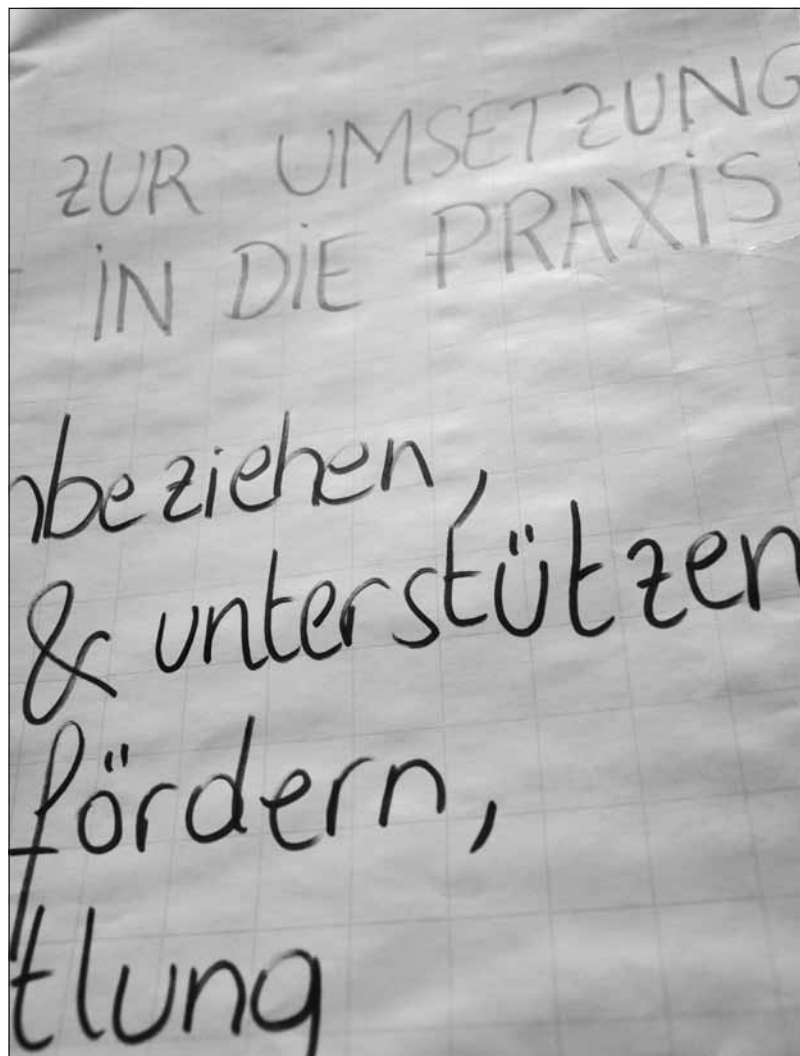 ZUR UMSETZUNG
IN DIE PRAXIS
nbeziehen,
& unterstützen
fördern,
tlung